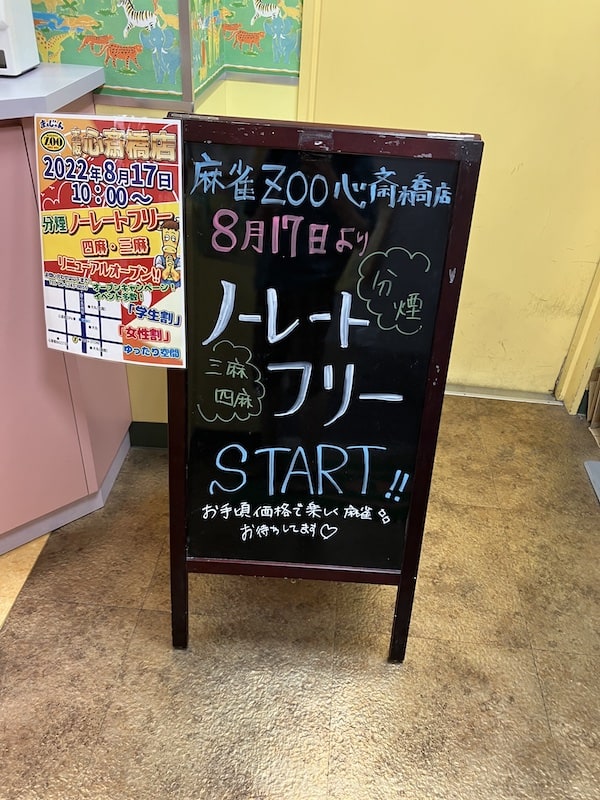 まぁじゃん
ZOO
心斎橋店
2022年8月17日
10:00〜
分煙 ノーレートフリー
四麻・三麻
リニューアルオープン!!
オープンキャンペーン・
イベント多数!
「学生割」
「女性割」
ゆったり空間
麻雀ZOO心斎橋店
8月17日より
分煙
ノーレート
三麻
四麻
フリー
START!!
お手頃価格で楽しく麻雀
お待ちしてます♡